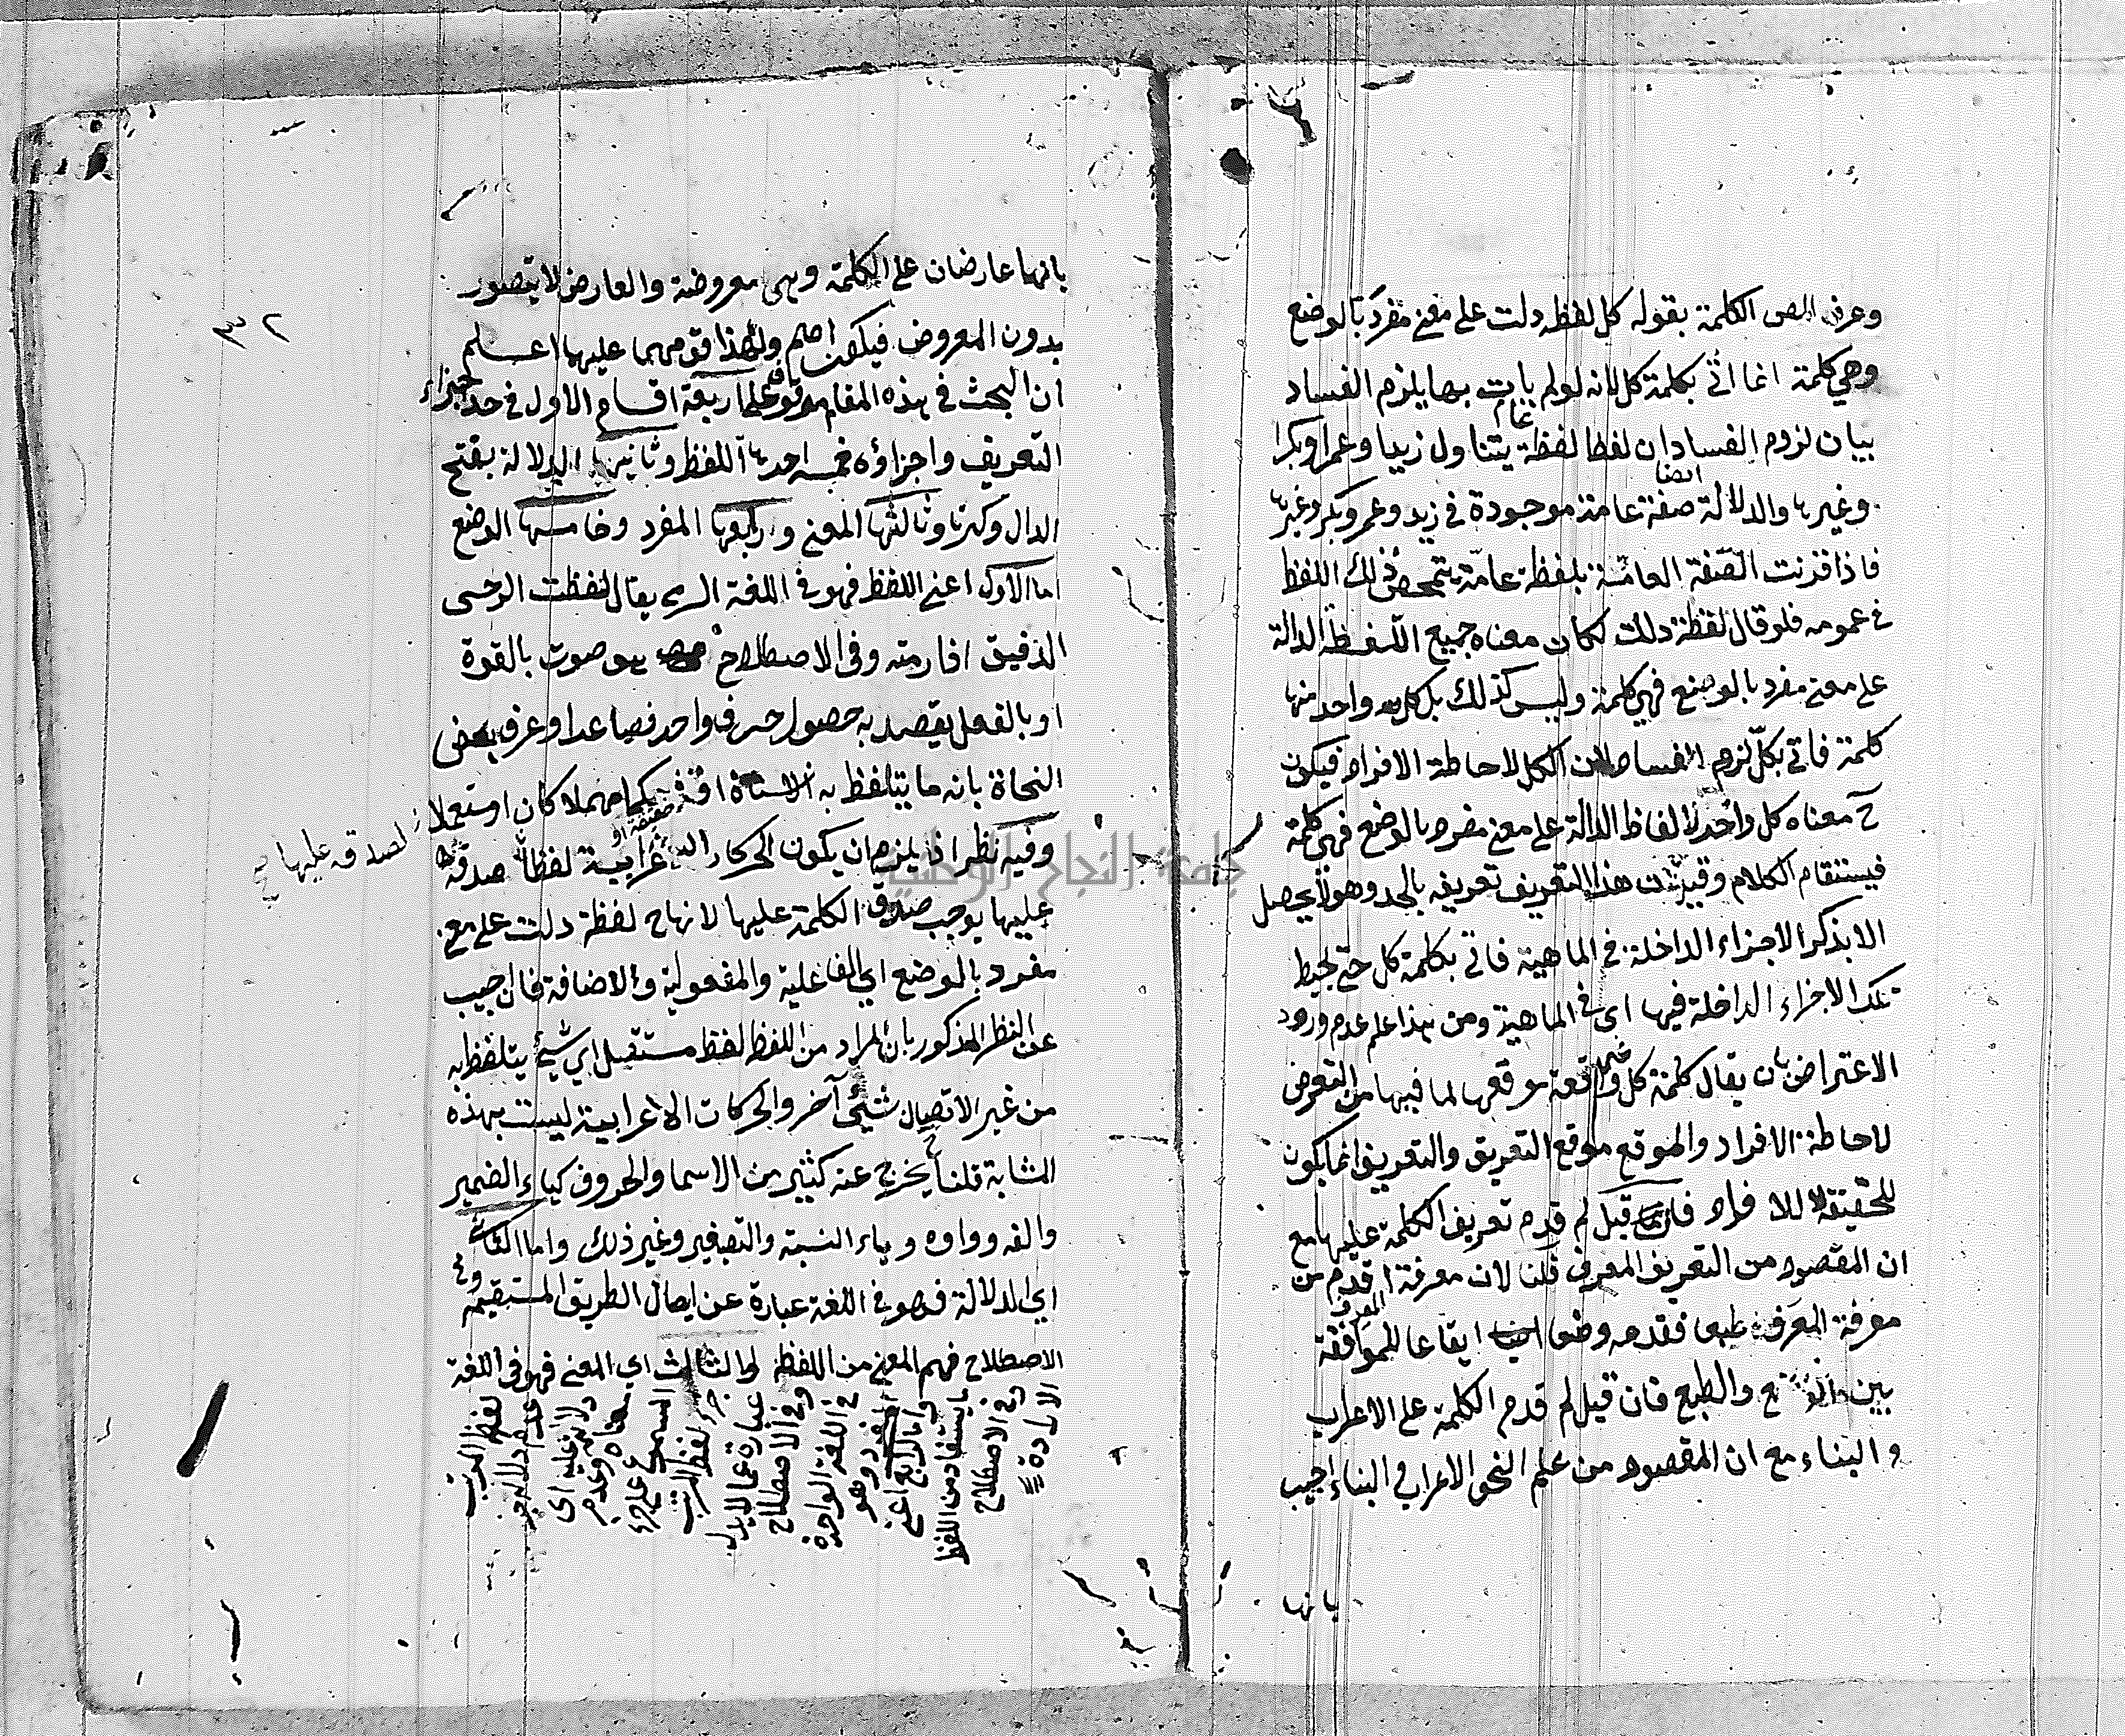 وعرف المص الكلمة بقوله كل لفظة دلت على معنى مفرد بالوضع
وهي كلمة انما اتى بكلمة كل لانه لو لم يات بها يلزم الفساد
بيان لزوم الفساد ان لفظا لفظة عام يتناول زيدا وعمرا وبكرا
وغيرها والدلالة ايضا صفة عامة موجودة في زيد وعمر وبكر وغيرها
فاذا قرنت الصفة العامة بلفظة عامة يتمحض ذلك اللفظ
في عمومه فلو قال لفظة دلت لكان معناه جميع اللفظة الدالة
على معنى مفرد بالوضع فهي كلمة وليس كذلك بل كل واحد منها
كلمة فاتى بكل لزوم الفساد لان الكل لاحاطة الافراد فيكون
ح معناه كل واحد لالفاظ الدالة على معنى مفرد بالوضع فهي كلمة
فيستقام الكلام وقيل هذا التعريف تعريف بالحد وهو لا يحصل
الا بذكر الاجزاء الداخلة في الماهية فاتى بكلمة كل حتى يحيط
تلك الاجزاء الداخلة فيها اى في الماهية ومن هذا علم عدم ورود
الاعتراض بان يقال كلمة كل واقعة موقعها لما فيها من التعرض
لاحاطة الافراد والموقع موقع التعريف والتعريف انما يكون
للحقيقة لا للافراد فان قيل لم قدم تعريف الكلمة عليها مع
ان المقصود من التعريف المعرف قلنا لان معرفة اقدم من
معرفة المعرف طبعا فقدمه وضعا ايقاعا للموافقة
بين الوضع والطبع فان قيل لم قدم الكلمة على الاعراب
والبناء مع ان المقصود من علم النحو الاعراب والبناء اجيب
بانها
٣٢
بانها عارضان على الكلمة وهى معروضة والعارض لا يتصور
بدون المعروض فيكون اصلهم ولهذا قومهما عليها اعلم
ان البحث في هذه المقام موقوف على اربعة اقسام الاول في حد اجزاء
التعريف واجزاؤه خمسة احدها اللفظ وثانيها الدلالة بفتح
الدال وكسرها وثالثها المعنى ورابعها المفرد وخامسها الوضع
اما الاول اعني اللفظ فهو في اللغة الرمى يقال لفظت الرحى
الدقيق اذا رمته وفى الاصطلاح هو صوت بالقوة
او بالفعل يقصد به حصول حرف واحد فصاعدا وعرف بعض
النحاة بانه ما يتلفظ به الانسان حقيقة او حكما مهملا كان او مستعملا
وفيه نظر اذ يلزم ان يكون الحركات الاعرابية لفظا صدقه
لصدقه عليها ح
عليها يوجب صدق الكلمة عليها لانها ح لفظة دلت على معنى
مفرد بالوضع اي الفاعلية والمفعولية والاضافة فان اجيب
عن النظر المذكور بان المراد من اللفظ لفظ مستقبل اي شيئ يتلفظ به
من غير الاتصال شئ آخر والحركات الاعرابية ليست بهذه
المثابة قلنا ح يخرج عنه كثير من الاسما والحروف كياء الضمير
والفه وواوه وياء النسبة والتصغير وغير ذلك واما الثاني
اي الدلالة فهو في اللغة عبارة عن ايصال الطريق المستقيم وفى
الاصطلاح فهم المعنى من اللفظ اما الثالث اي المعنى فهو فى اللغة
الارادة
وفى الاصطلاح
يستفاد من اللفظ
واما الرابع اعنى
المفرد وهو
في اللغة الواحدة
وفى الاصطلاح
عبارة عما لا يدل
جزء لفظ